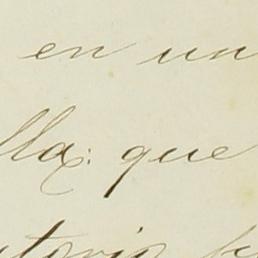 en un
lla: que